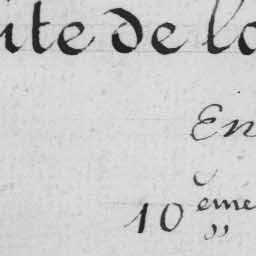 ite de la
En
10 ème
"